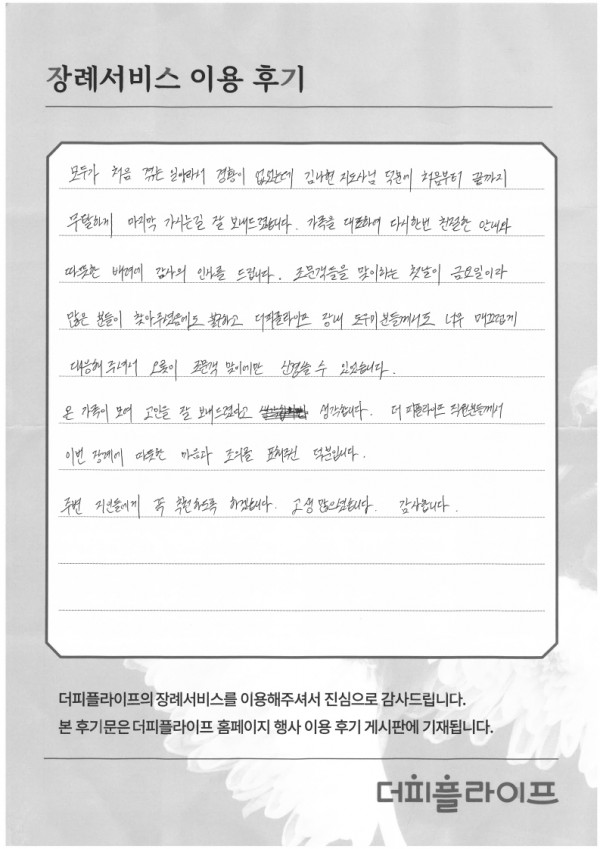 장례서비스 이용 후기
모두가 처음 겪는 일이라서 경황이 없었는데 김나현 지도사님 덕분에 처음부터 끝까지
무탈하게 마지막 가시는길 잘 보내드렸습니다. 가족을 대표하여 다시한번 친절한 안내와
따뜻한 배려에 감사의 인사를 드립니다. 조문객들을 맞이하는 첫날이 금요일이라
많은 분들이 찾아와주셨음에도 불구하고 더피플라이프 장내 도우미분들께서도 너무 매끄럽게
대응해주셔서 오롯이 조문객 맞이에만 신경쓸 수 있었습니다.
온 가족이 모여 고인을 잘 보내드렸다고 생각합니다. 더피플라이프 직원분들께서
이번 장례에 따뜻한 마음과 조의를 표해주신 덕분입니다.
주변 지인들에게 꼭 추천하도록 하겠습니다. 고생 많으셨습니다. 감사합니다.
더피플라이프의 장례서비스를 이용해주셔서 진심으로 감사드립니다.
본 후기문은 더피플라이프 홈페이지 행사 이용 후기 게시판에 기재됩니다.
더피플라이프